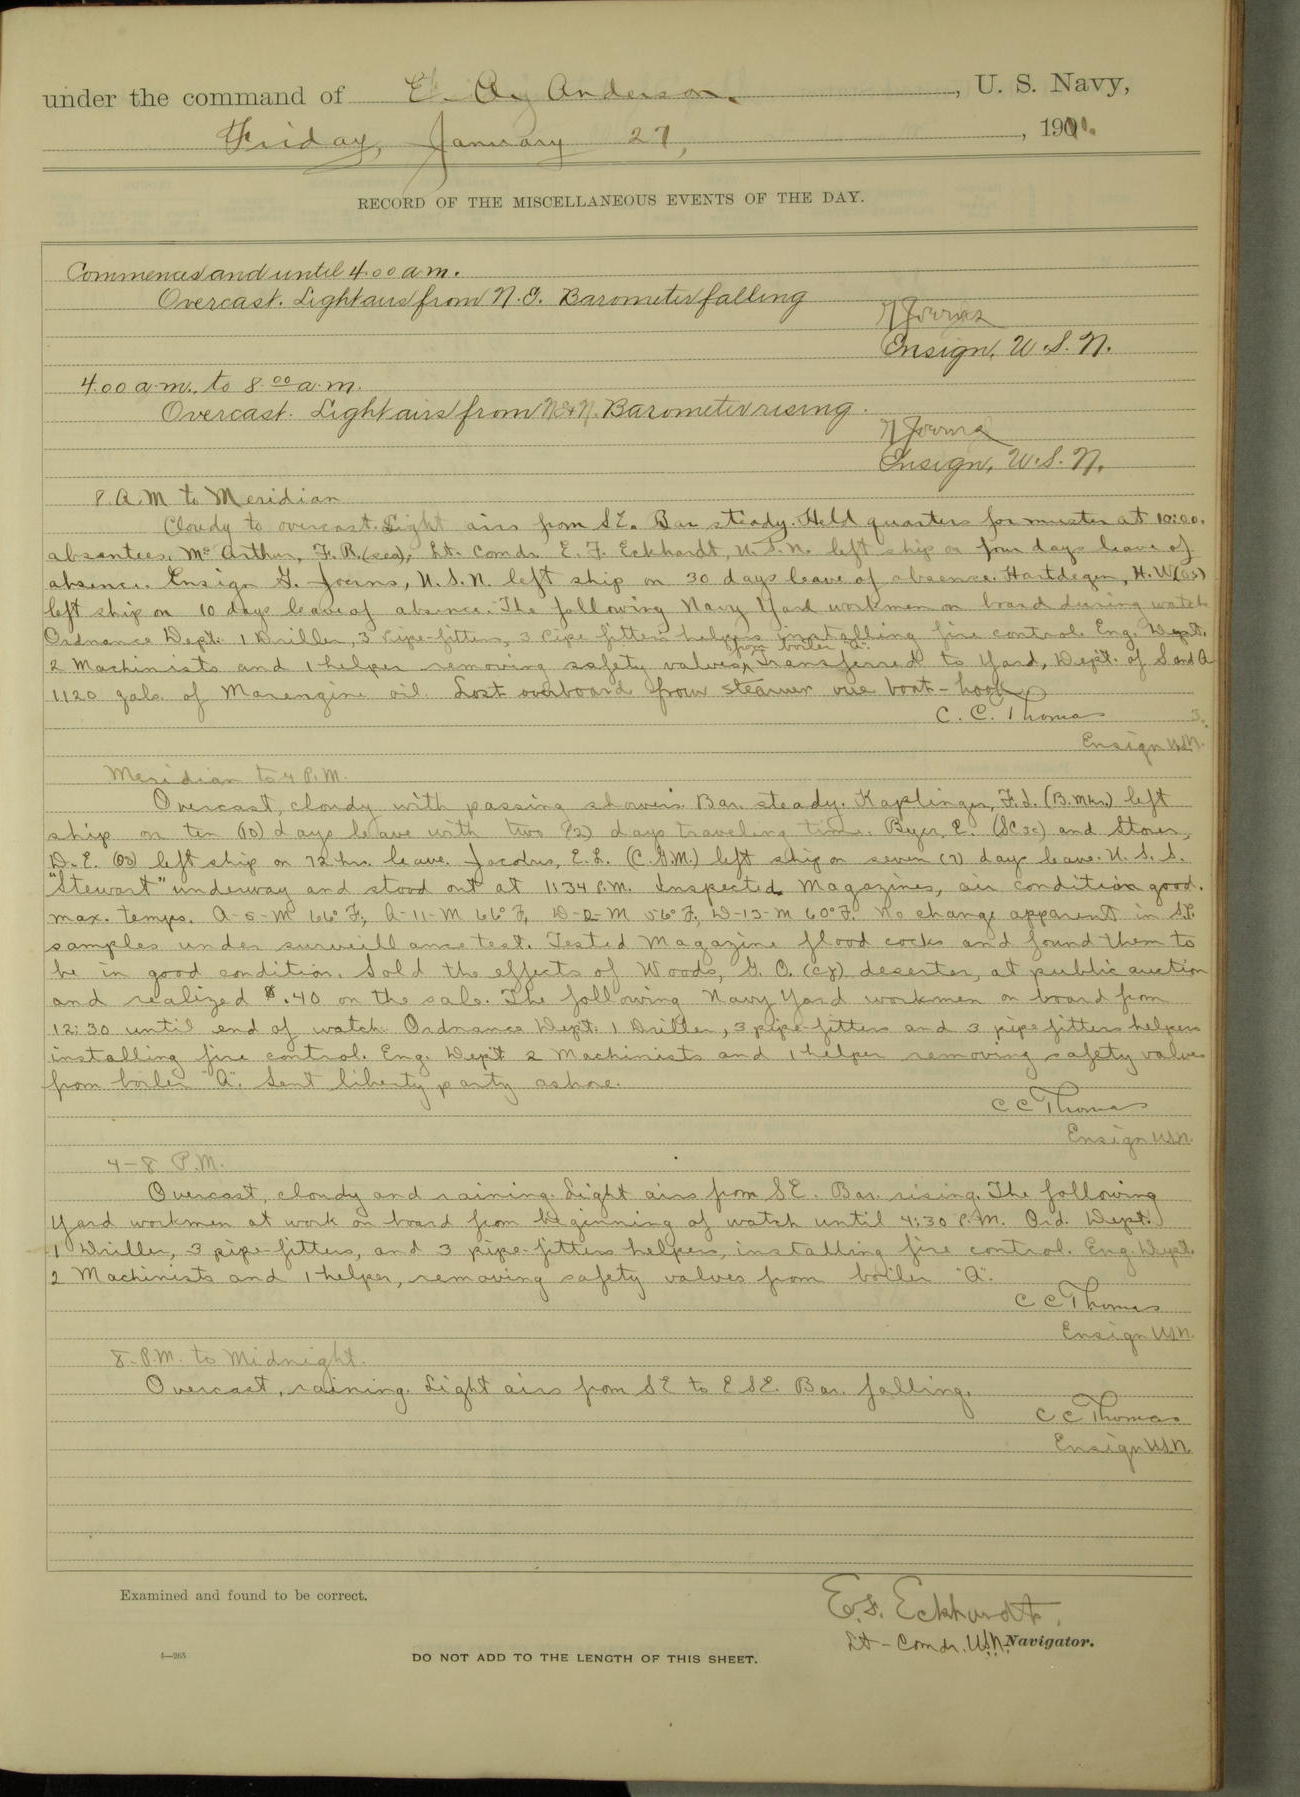 under the command of E. A. Anderson, U. S. Navy,
Friday, January 27, 1911.
RECORD OF THE MISCELLANEOUS EVENTS OF THE DAY.
Commences and until 4.00 a.m.
Overcast. Light airs from N.E. Barometer falling
Ensign, U.S.N.
4.00 a.m. to 8.00 a.m.
Overcast. Light airs from NE & N. Barometer rising.
Ensign, U.S.N.
8 A.M to Meridian
Cloudy to overcast. Light airs from SE. Bar steady. Held quarters for muster at 10:00.
absentees, McArthur, F.R. (sea); Lt. Comdr. E. F. Eckhardt, U.S.N. left ship on four days leave of
absence. Ensign G. Joerns, U.S.N. left ship on 30 days leave of absence. Hartdegen, H.W. (OS)
left ship on 10 days leave of absence. The following Navy Yard workmen on board during watch
Ordnance Dept. 1 Driller, 3 pipe-fitters, 3 pipe fitters helpers installing fire control. Eng. Dept.
2 Machinists and 1 helper removing safety valves from boiler "A". Transferred to Yard, Dept. of S and A
1120 gals. of Marengine oil. Lost overboard from steamer one boat-hook
C. C. Thomas
Ensign U.S.N.
Meridian to 4 P.M.
Overcast, cloudy with passing showers. Bar. steady. Kaplinger, F.J. (B.Mkr.) left
ship on ten (10) days leave with two (2) days traveling time. Byer, E. (SC3c) and Stover,
D.E. (OS) left ship on 72 hr. leave. Jacobus, E.L. (C.G.M.) left ship on seven (7) days leave. U.S.S.
"Stewart" underway and stood out at 1:34 P.M. Inspected Magazines, air condition good.
max. temps. A-5-M 66° F, A-11-M 66° F, D-2-M 56° F, D-13-M 60° F. No change apparent in S.P.
samples under surveillance test. Tested Magazine flood cocks and found them to
be in good condition. Sold the effects of Woods, G. O. deserter, at public auction
and realized $.40 on the sale. The following Navy Yard workmen on board from
12:30 until end of watch. Ordnance Dept. 1 Driller, 3 pipe-fitters and 3 pipe fitters helpers
installing fire control. Eng. Dept. 2 Machinists and 1 helper removing safety valves
from boiler "A". Sent liberty party ashore.
C C Thomas
Ensign U.S.N.
4-8 P.M.
Overcast, cloudy and raining. Light airs from SE. Bar. rising. The following
Yard workmen at work on board from beginning of watch until 4:30 P.M. Ord. Dept.
1 Driller, 3 pipe-fitters, and 3 pipe-fitters helpers, installing fire control. Eng. Dept.
2 Machinists and 1 helper, removing safety valves from boiler "A".
C C Thomas
Ensign U.S.N.
8-P.M. to Midnight.
Overcast, raining. Light airs from SE to ESE. Bar. falling.
C C Thomas
Ensign U.S.N.
Examined and found to be correct.
E.F. Eckhardt.
Lt-Comdr. U.S.N. Navigator.
4—265
DO NOT ADD TO THE LENGTH OF THIS SHEET.